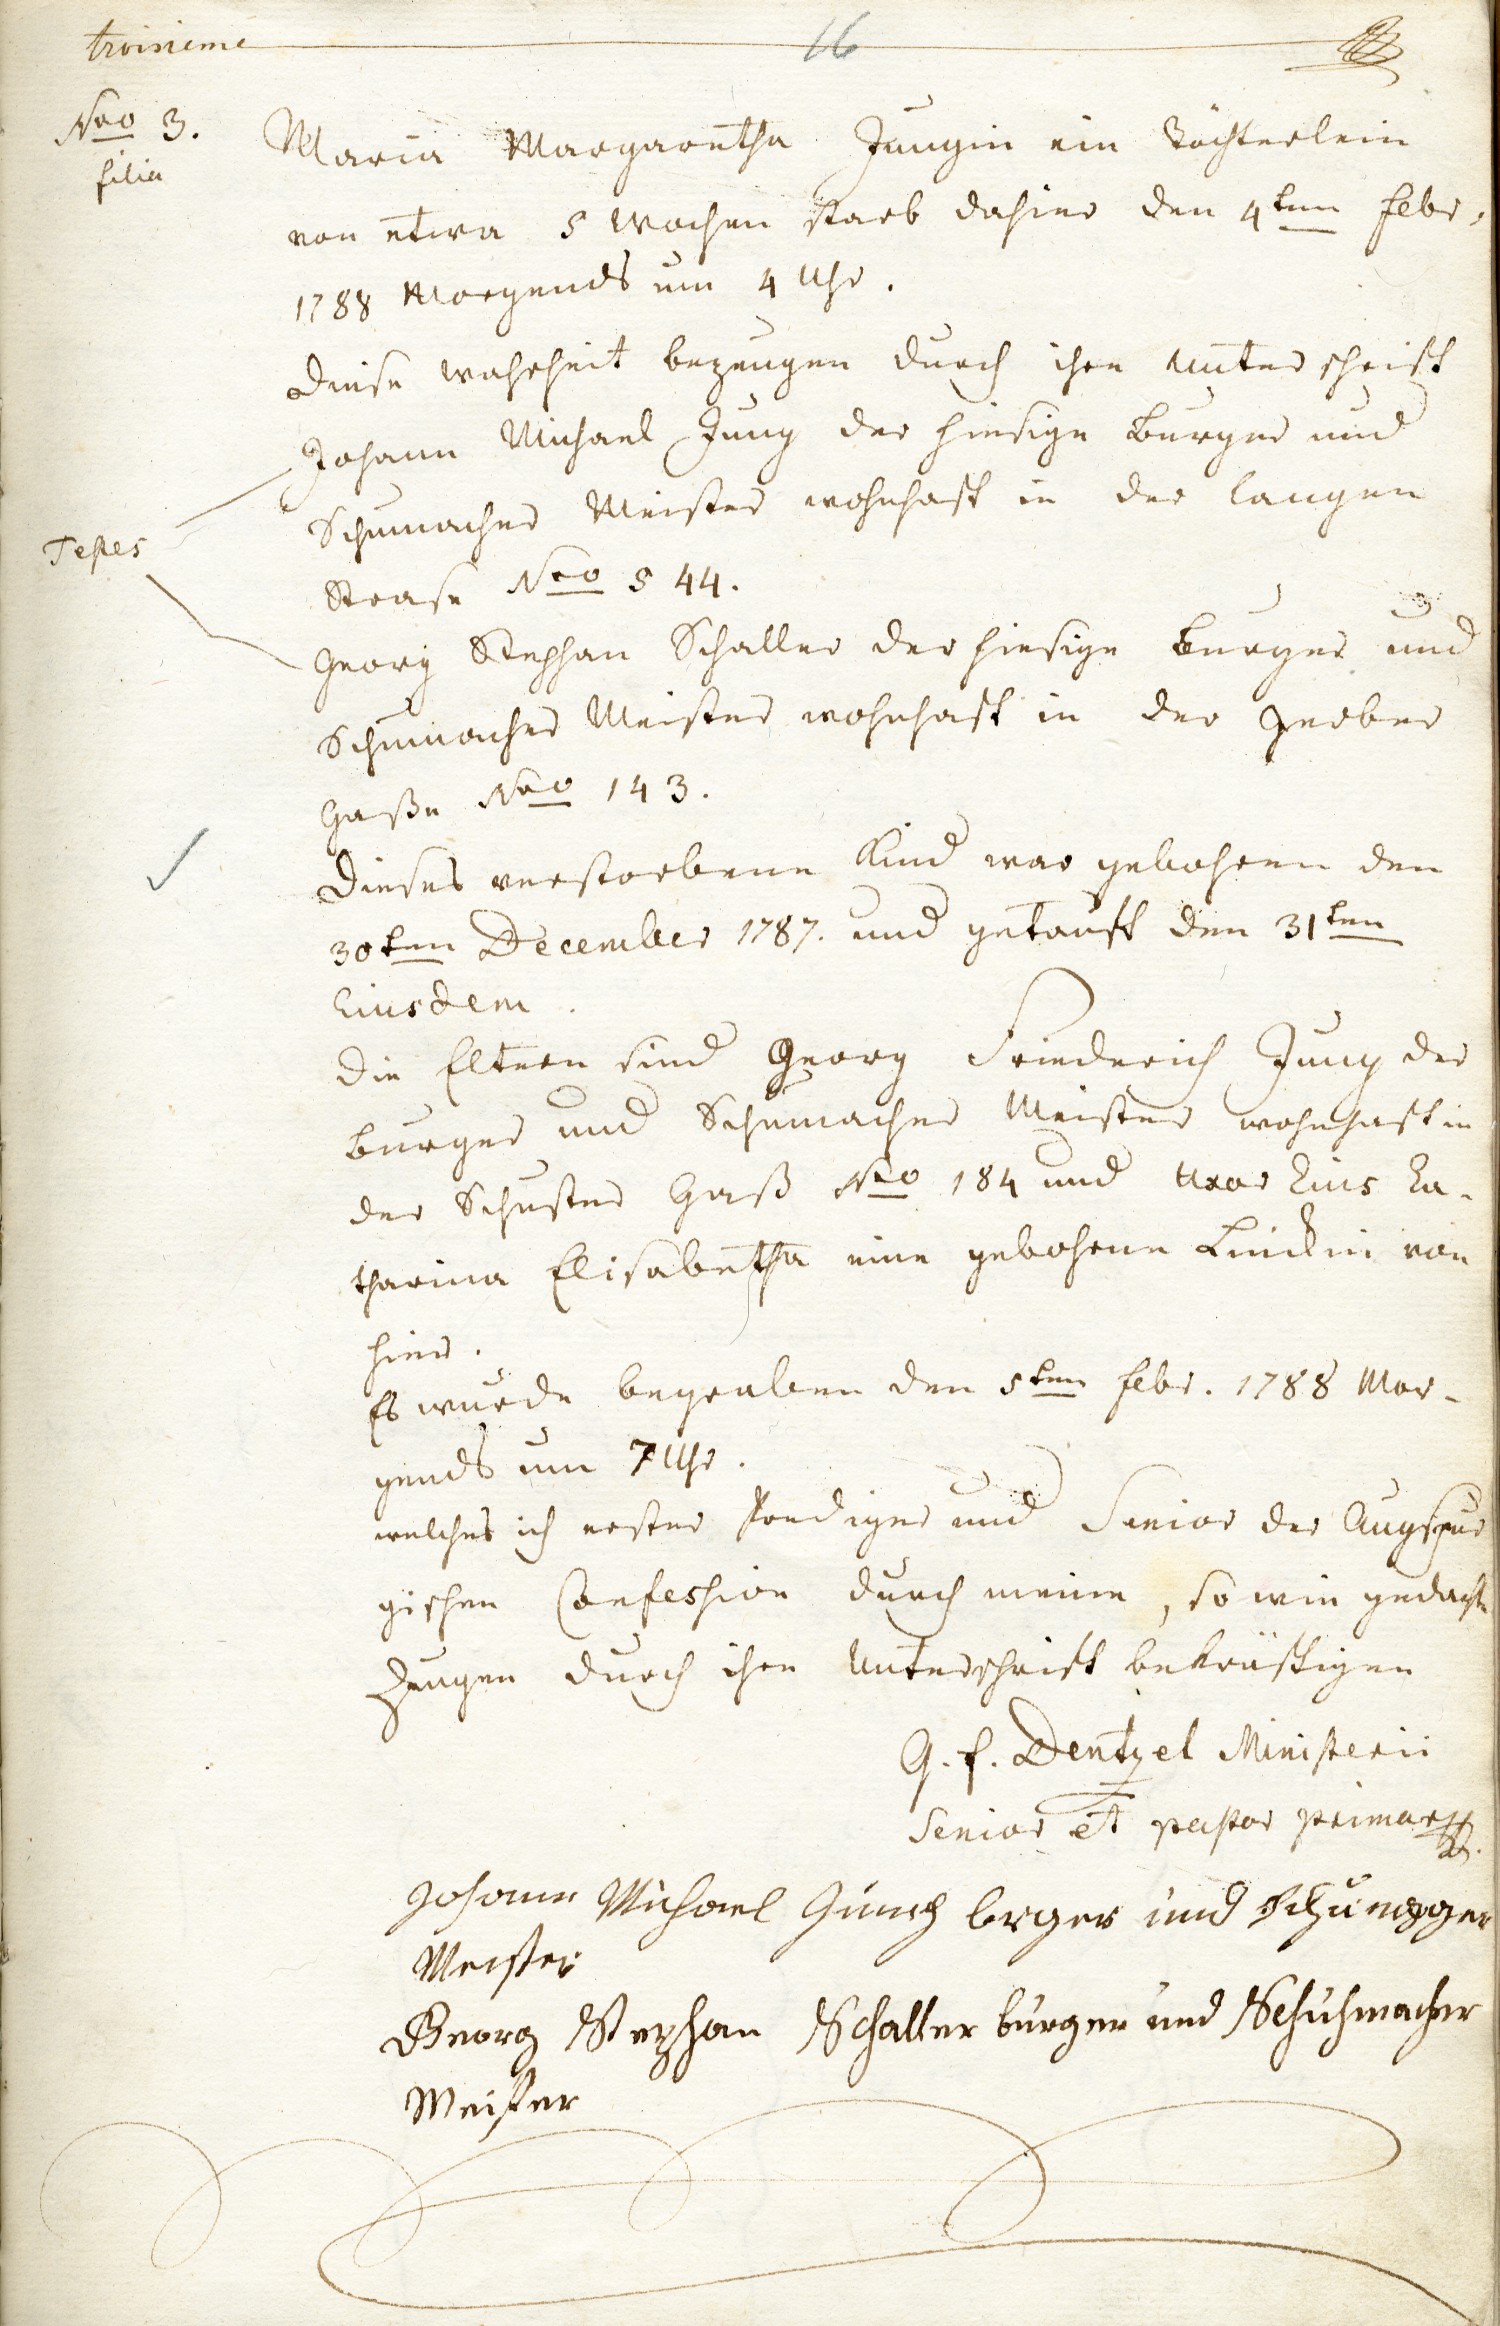 troisieme 16
Nro 3.
filia
Maria Margaretha Jungin ein Töchterlein
von etwa 5 Wochen starb dahier den 4ten febr.
1788 Morgends um 4 Uhr.
Diese wahrheit bezeugen durch ihre Unterschrift
Johann Michael Jung der hiesige Burger und
Schumacher Meister wohnhaft in der langen
Testes
Strase Nro 544.
Georg Stephan Schaller der hiesige Burger und
Schumacher Meister wohnhaft in der Gerber
Gaße Nro 143.
Dieses verstorbene Kind war gebohren den
30ten December 1787. und getauft den 31ten
Eiusdem.
Die Eltern sind Georg Friederich Jung der
Burger und Schumacher Meister wohnhaft in
der Schuster Gaß Nro 184 und Uxor Eius Ca-
tharina Elisabetha eine gebohrne Linckin von
hier.
Es wurde begraben den 5ten febr. 1788 Mor-
gends um 7 Uhr.
welches ich erster Prediger und Senior der Augspur
gischen Confession durch meine, so wie gedachte
Zeugen durch ihre Unterschrift bekräftigen
G. F. Dentzel Ministerii
Senior et pastor primar
Johann Michael Jung berger und
Meister
Georg Stephan Schaller burger und Schuhmacher
Meister